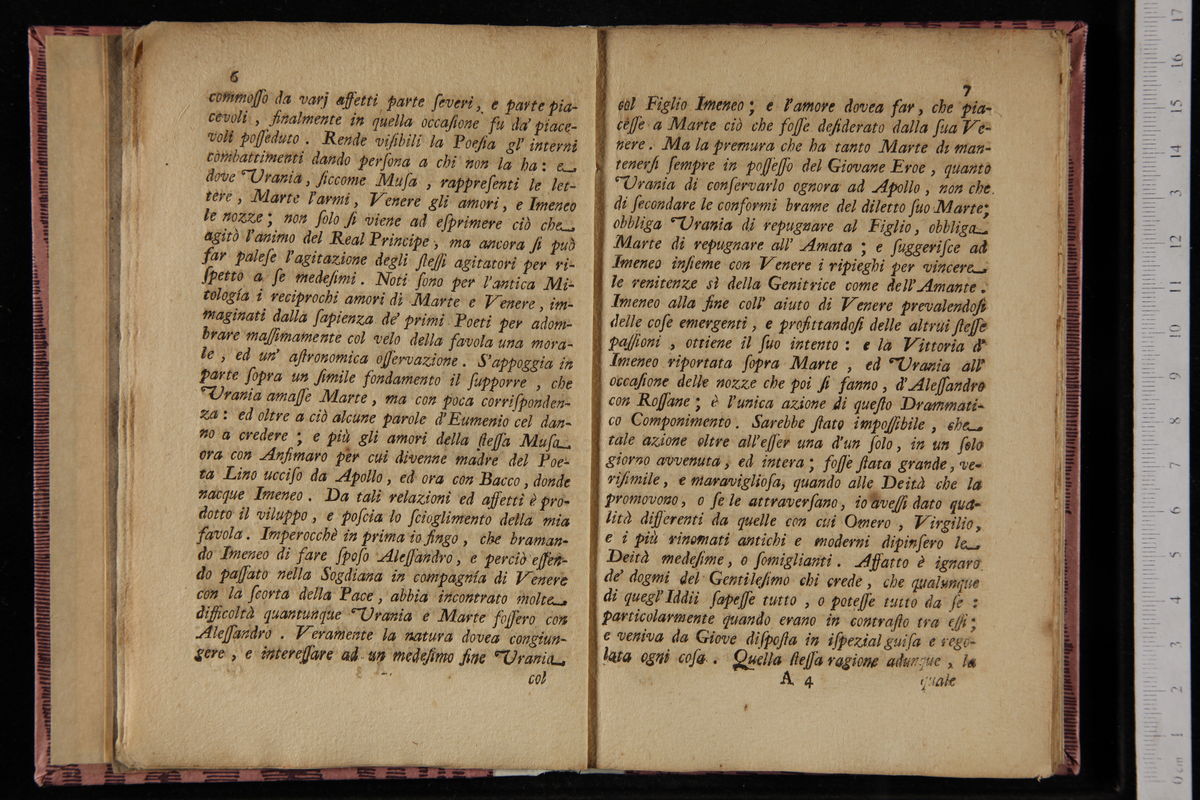 6
commoſſo da varj affetti parte ſeveri, e parte pia-
cevoli , finalmente in quella occaſione fu da' piace-
voli poſſeduto . Rende viſibili la Poeſia gl' interni
combattimenti dando perſona a chi non la ha : e
dove Urania, ſiccome Muſa , rappreſenti le let-
tere , Marte l'armi , Venere gli amori , e Imeneo
le nozze ; non ſolo ſi viene ad eſprimere ciò che
agitò l'animo del Real Principe , ma ancora ſi può
far paleſe l'agitazione degli ſteſſi agitatori per ri-
ſpetto a ſe medeſimi . Noti ſono per l'antica Mi-
tología i reciprochi amori di Marte e Venere , im-
maginati dalla ſapienza de' primi Poeti per adom-
brare maſſimamente col velo della favola una mora-
le , ed un' aſtronomica oſſervazione . S'appoggia in
parte ſopra un ſimile fondamento il ſupporre , che
Urania amaſſe Marte , ma con poca corriſponden-
za : ed oltre a ciò alcune parole d'Eumenio cel dan-
no a credere ; e più gli amori della ſteſſa Muſa
ora con Anfimaro per cui divenne madre del Poe-
ta Lino ucciſo da Apollo , ed ora con Bacco , donde
nacque Imeneo . Da tali relazioni ed affetti è pro-
dotto il viluppo , e poſcia lo ſcioglimento della mia
favola . Imperocchè in prima io fingo , che braman-
do Imeneo di fare ſpoſo Aleſſandro , e perciò eſſen-
do paſſato nella Sogdiana in compagnía di Venere
con la ſcorta della Pace , abbia incontrato molte
difficoltà quantunque Urania e Marte foſſero con
Aleſſandro . Veramente la natura dovea congiun-
gere , e intereſſare ad un medeſimo fine Urania
col
7
col Figlio Imeneo ; e l'amore dovea far , che pia-
ceſſe a Marte ciò che foſſe deſiderato dalla ſua Ve-
nere . Ma la premura che ha tanto Marte di man-
tenerſi ſempre in poſſeſſo del Giovane Eroe , quanto
Urania di conſervarlo ognora ad Apollo , non che
di ſecondare le conformi brame del diletto ſuo Marte;
obbliga Urania di repugnare al Figlio, obbliga
Marte di repugnare all' Amata ; e ſuggeriſce ad
Imeneo inſieme con Venere i ripieghi per vincere
le renitenze sì della Genitrice come dell'Amante .
Imeneo alla fine coll' aiuto di Venere prevalendoſi
delle coſe emergenti , e profittandoſi delle altrui ſteſſe
paſſioni , ottiene il ſuo intento : e la Vittoria d'
Imeneo riportata ſopra Marte , ed Urania all'
occaſione delle nozze che poi ſi fanno , d'Aleſſandro
con Roſſane ; è l'unica azione di queſto Drammati-
co Componimento . Sarebbe ſtato impoſſibile , che
tale azione oltre all'eſſer una d'un ſolo , in un ſolo
giorno avvenuta , ed intera ; foſſe ſtata grande , ve-
riſimile , e maraviglioſa, quando alle Deità che la
promovono , o ſe le attraverſano , io aveſſi dato qua-
lità differenti da quelle con cui Omero , Virgilio,
e i più rinomati antichi e moderni dipinſero le
Deità medeſime , o ſomiglianti . Affatto è ignaro
de' dogmi del Gentileſimo chi crede , che qualunque
di quegl' Iddii ſapeſſe tutto , o poteſſe tutto da ſe :
particolarmente quando erano in contraſto tra eſſi ;
e veniva da Giove diſpoſta in iſpezial guiſa e rego-
lata ogni coſa . Quella ſteſſa ragione adunque , la
A 4
quale